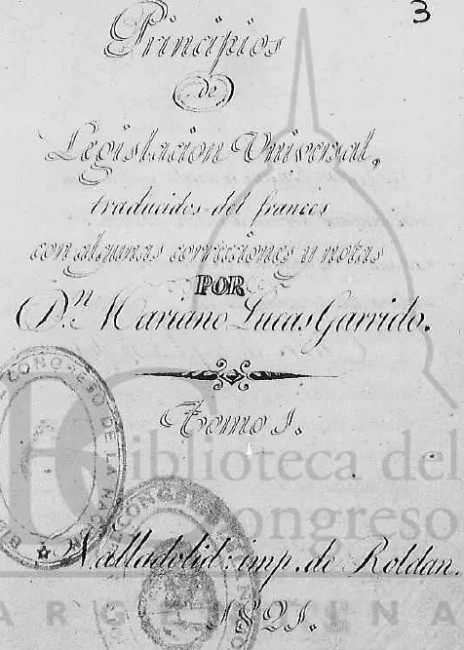 3
Principios
de
Legislacion Universal,
traducidos del frances
con algunas correcciones y notas
POR
D.n Mariano Lucas Garrido.
Tomo I.
Biblioteca del
Congreso
CONGRESO DE LA NACION
CONGRESO
Valladolid: imp. de Roldan.
ARGENTINA
1821.